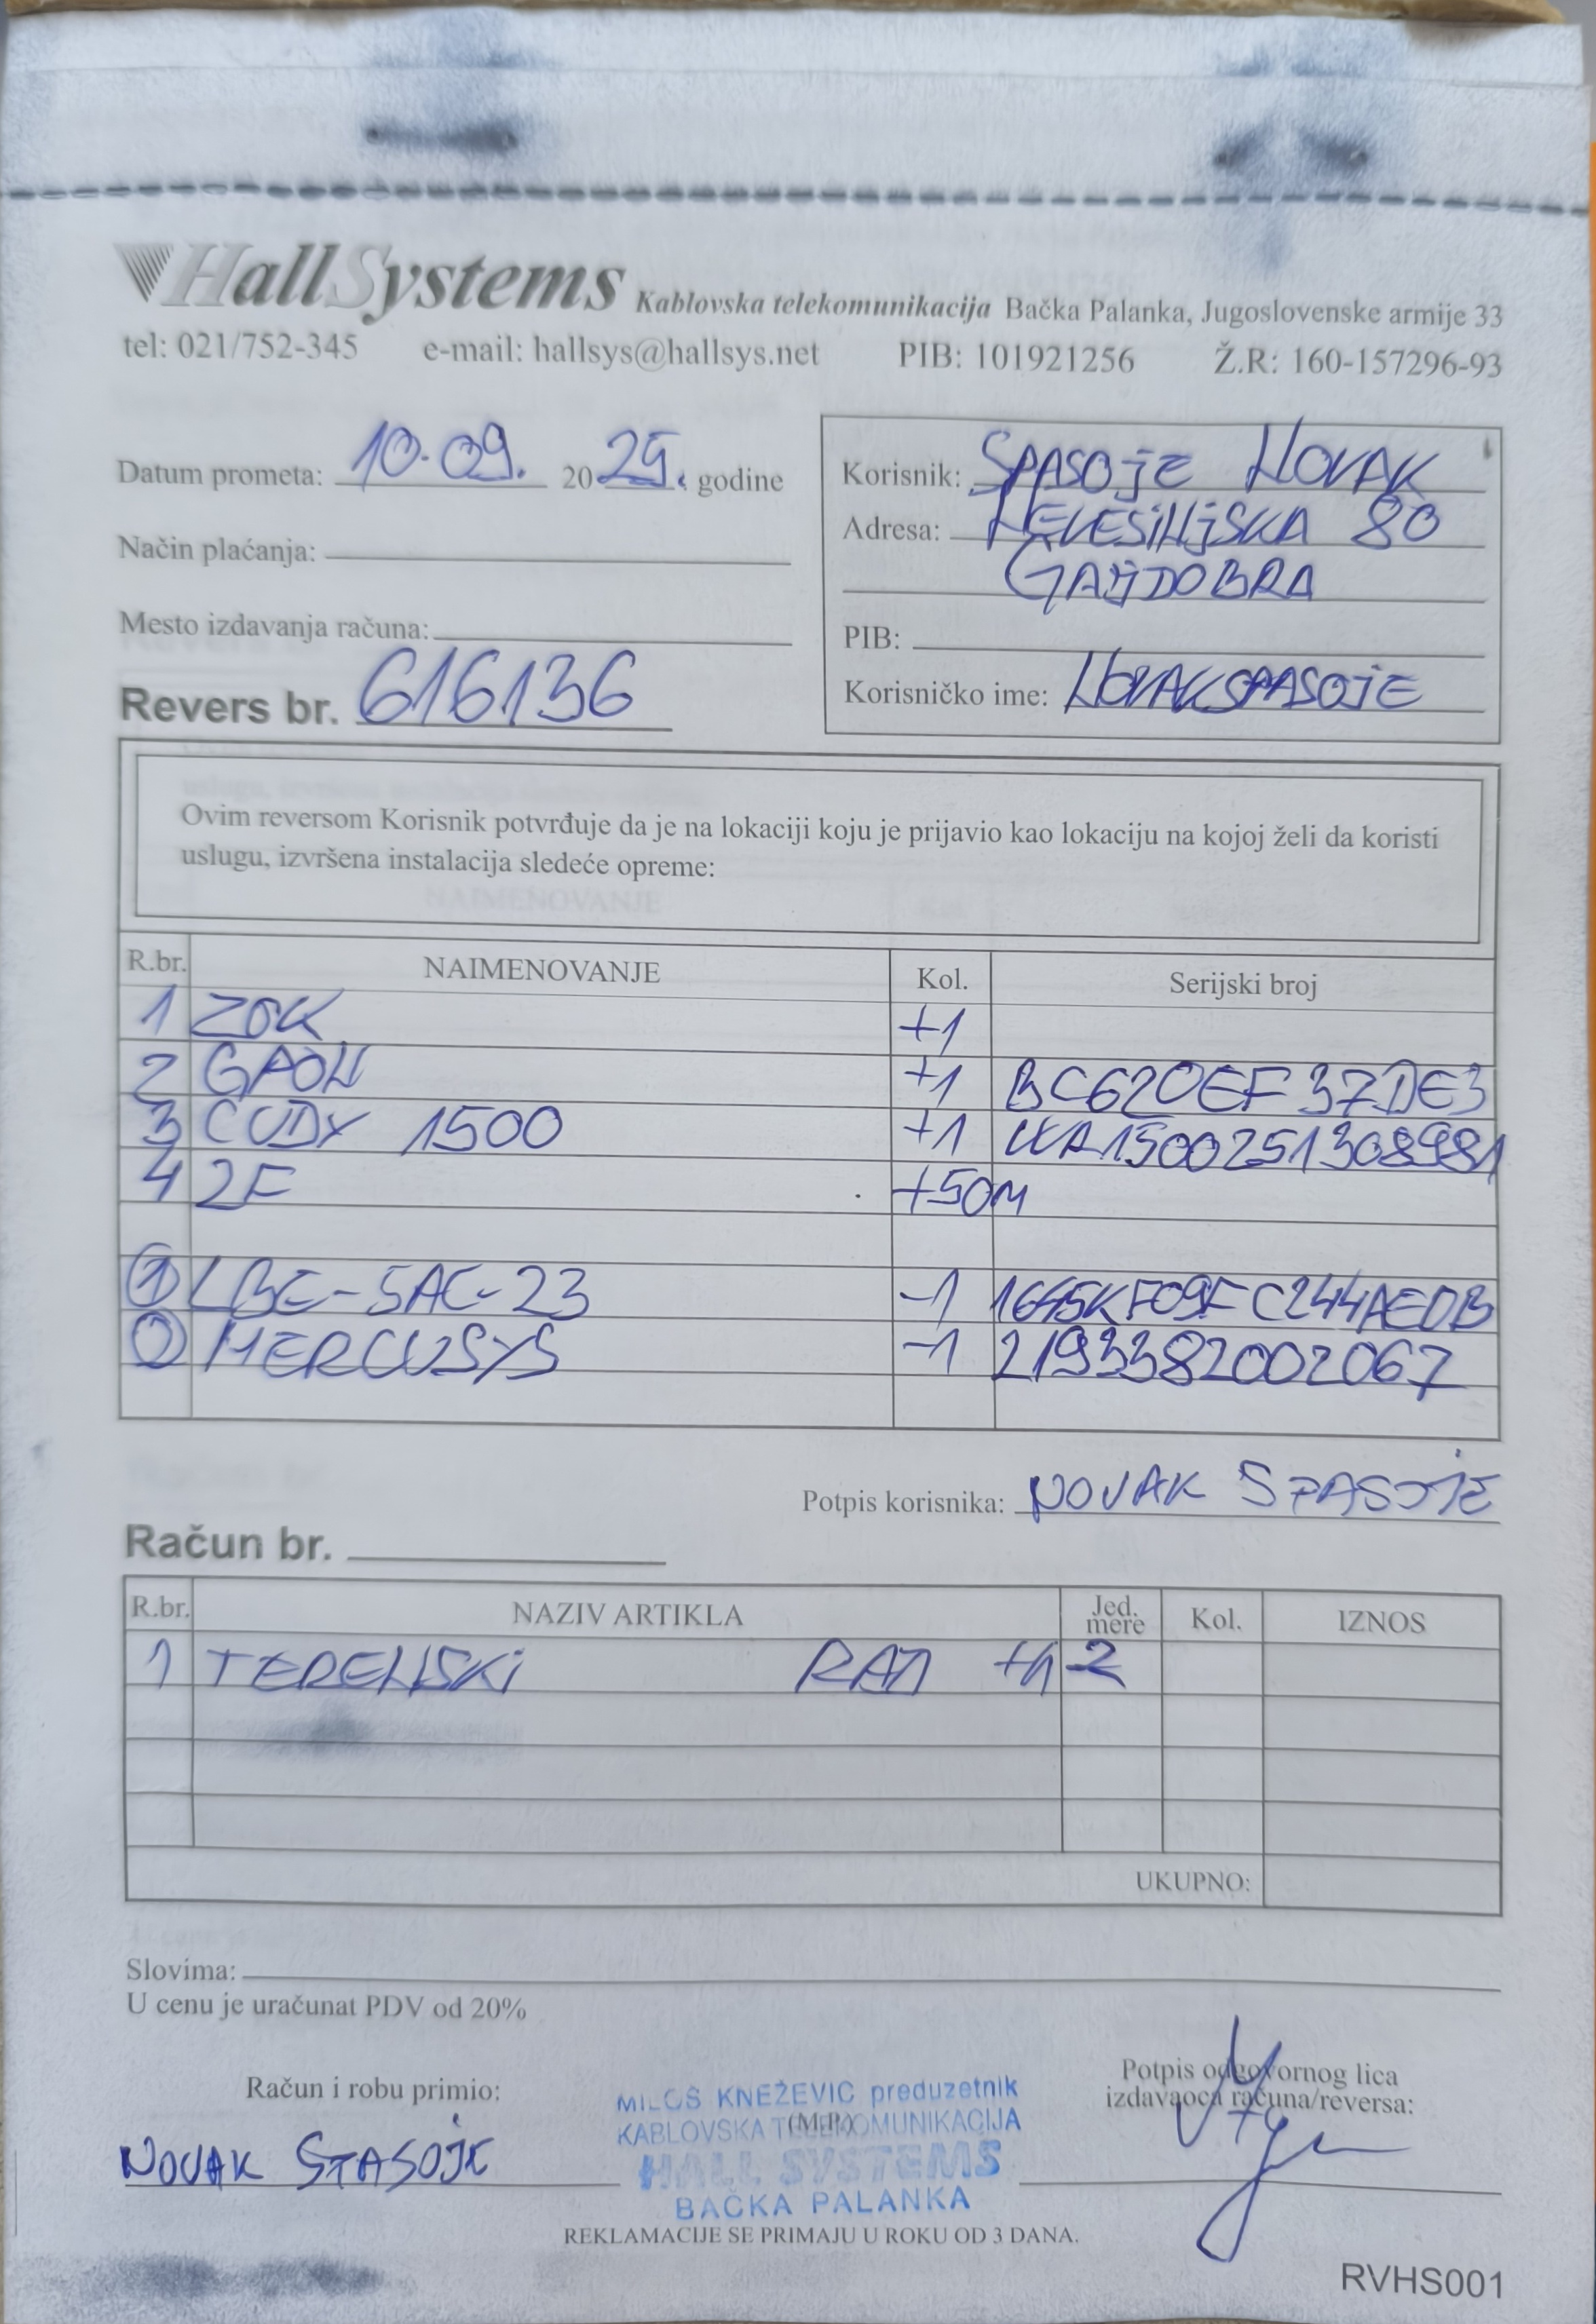 HallSystems Kablovska telekomunikacija Bačka Palanka, Jugoslovenske armije 33
tel: 021/752-345 e-mail: hallsys@hallsys.net PIB: 101921256 Ž.R: 160-157296-93
Datum prometa: 10.09. 2025. godine
Način plaćanja:
Mesto izdavanja računa:
Revers br. 616136
Korisnik: SPASOjE NOVAK
Adresa: NEVESiNjSKA 80
GAjDOBRA
PIB:
Korisničko ime: NOVAKSPASOjE
Ovim reversom Korisnik potvrđuje da je na lokaciji koju je prijavio kao lokaciju na kojoj želi da koristi
uslugu, izvršena instalacija sledeće opreme:
R.br. NAIMENOVANJE Kol. Serijski broj
1 ZOK +1
2 GPON +1 BC620EF37DE3
3 CUDY 1500 +1 WR1500251308981
4 2F +50M
1 LBE-5AC-23 -1 1645KF09FC244AEDB
2 MERCUSYS -1 2193382002067
Potpis korisnika: NOVAK SPASOJE
Račun br.
R.br. NAZIV ARTIKLA Jed. mere Kol. IZNOS
1 TERENSKi RAD +1 2
UKUPNO:
Slovima:
U cenu je uračunat PDV od 20%
Račun i robu primio:
NOVAK SPASOJE
MILOŠ KNEŽEVIĆ preduzetnik
KABLOVSKA TELEKOMUNIKACIJA
(M.P.)
HALL SYSTEMS
BAČKA PALANKA
Potpis odgovornog lica
izdavaoca računa/reversa:
REKLAMACIJE SE PRIMAJU U ROKU OD 3 DANA.
RVHS001